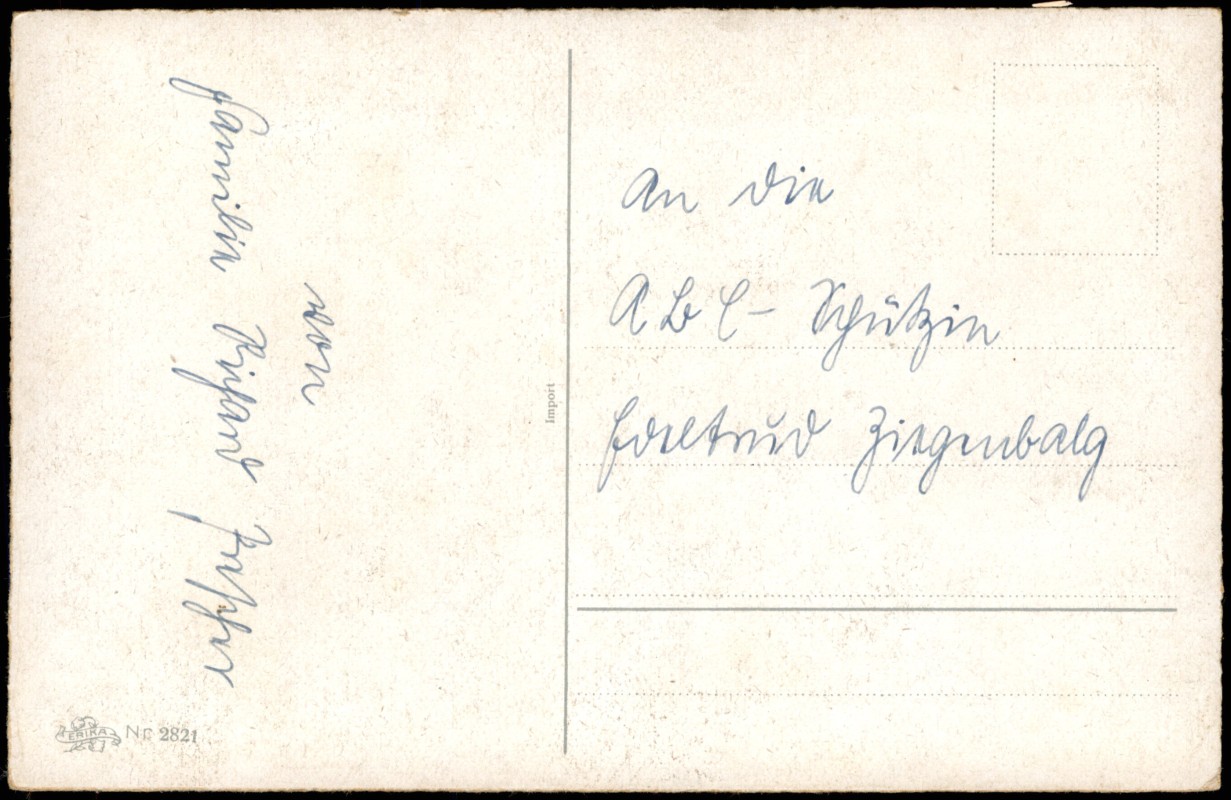 von
Familie Richard
An die
ABC- Schützin
Edeltrud Ziegenbalg
Import
ERIKA Nr 2821